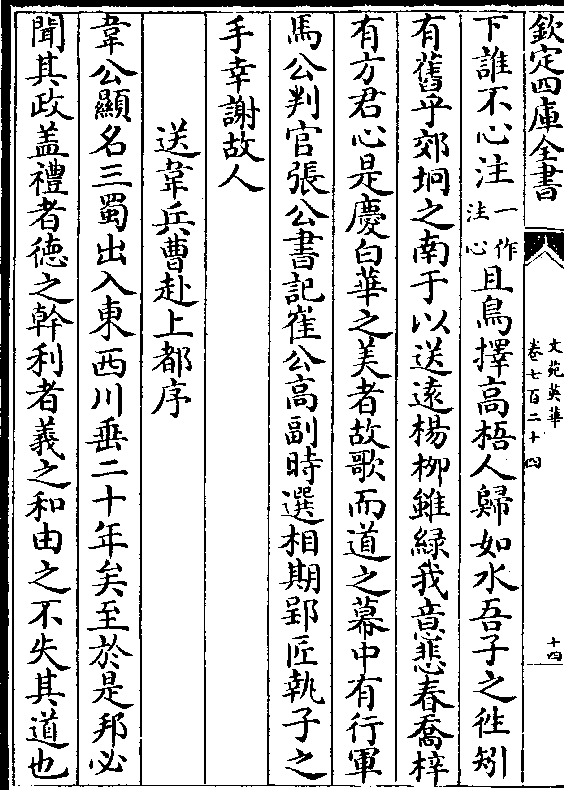 欽定四庫全書
文苑英華
卷七百二十四
十四
下誰不心注一作注心且鳥擇高梧人歸如水吾子之徃矧
有舊乎郊坰之南于以送遠楊栁雖緑我意悲春喬梓
有方君心是慶白華之美者故歌而道之幕中有行軍
馬公判官張公書記崔公高副時選相期郢匠執子之
手幸謝故人
送韋兵曹赴上都序
韋公顯名三蜀出入東西川垂二十年矣至於是邦必
聞其政盖禮者德之幹利者義之和由之不失其道也